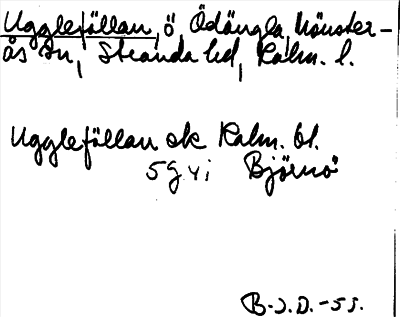 Ugglefällan, ö, Ödängla, Mönster-
ås sn, Stranda hd, Kalm. l.
Ugglefällan ek Kalm. bl.
5 G y i Björnö
B.J.D. -55.